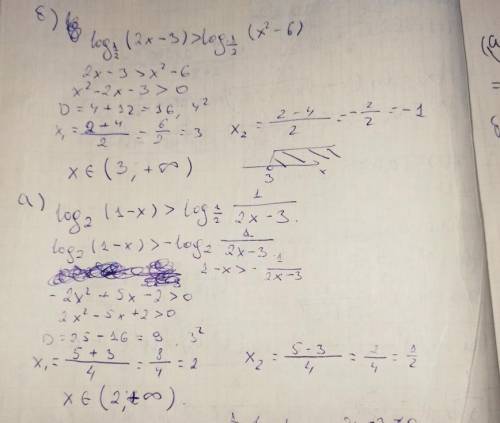 б) log_{1/2} (2x-3) > log_{1/2} (x²-6)
2x-3 > x²-6
x²-2x-3 > 0
D = 4+12 = 16, 4²
x₁ = \frac{2+4}{2} = \frac{6}{2} = 3 x₂ = \frac{2-4}{2} = -\frac{2}{2} = -1
3 x
x ∈ (3, +∞)
а) log₂ (1-x) > log_{1/2} \frac{1}{2x-3}.
log₂ (1-x) > -log₂ \frac{1}{2x-3}.
1-x > -\frac{1}{2x-3}
-2x²+5x-2 > 0
2x²-5x+2 > 0
D = 25-16 = 9, 3²
x₁ = \frac{5+3}{4} = \frac{8}{4} = 2 x₂ = \frac{5-3}{4} = \frac{2}{4} = \frac{1}{2}
x ∈ (2, +∞).